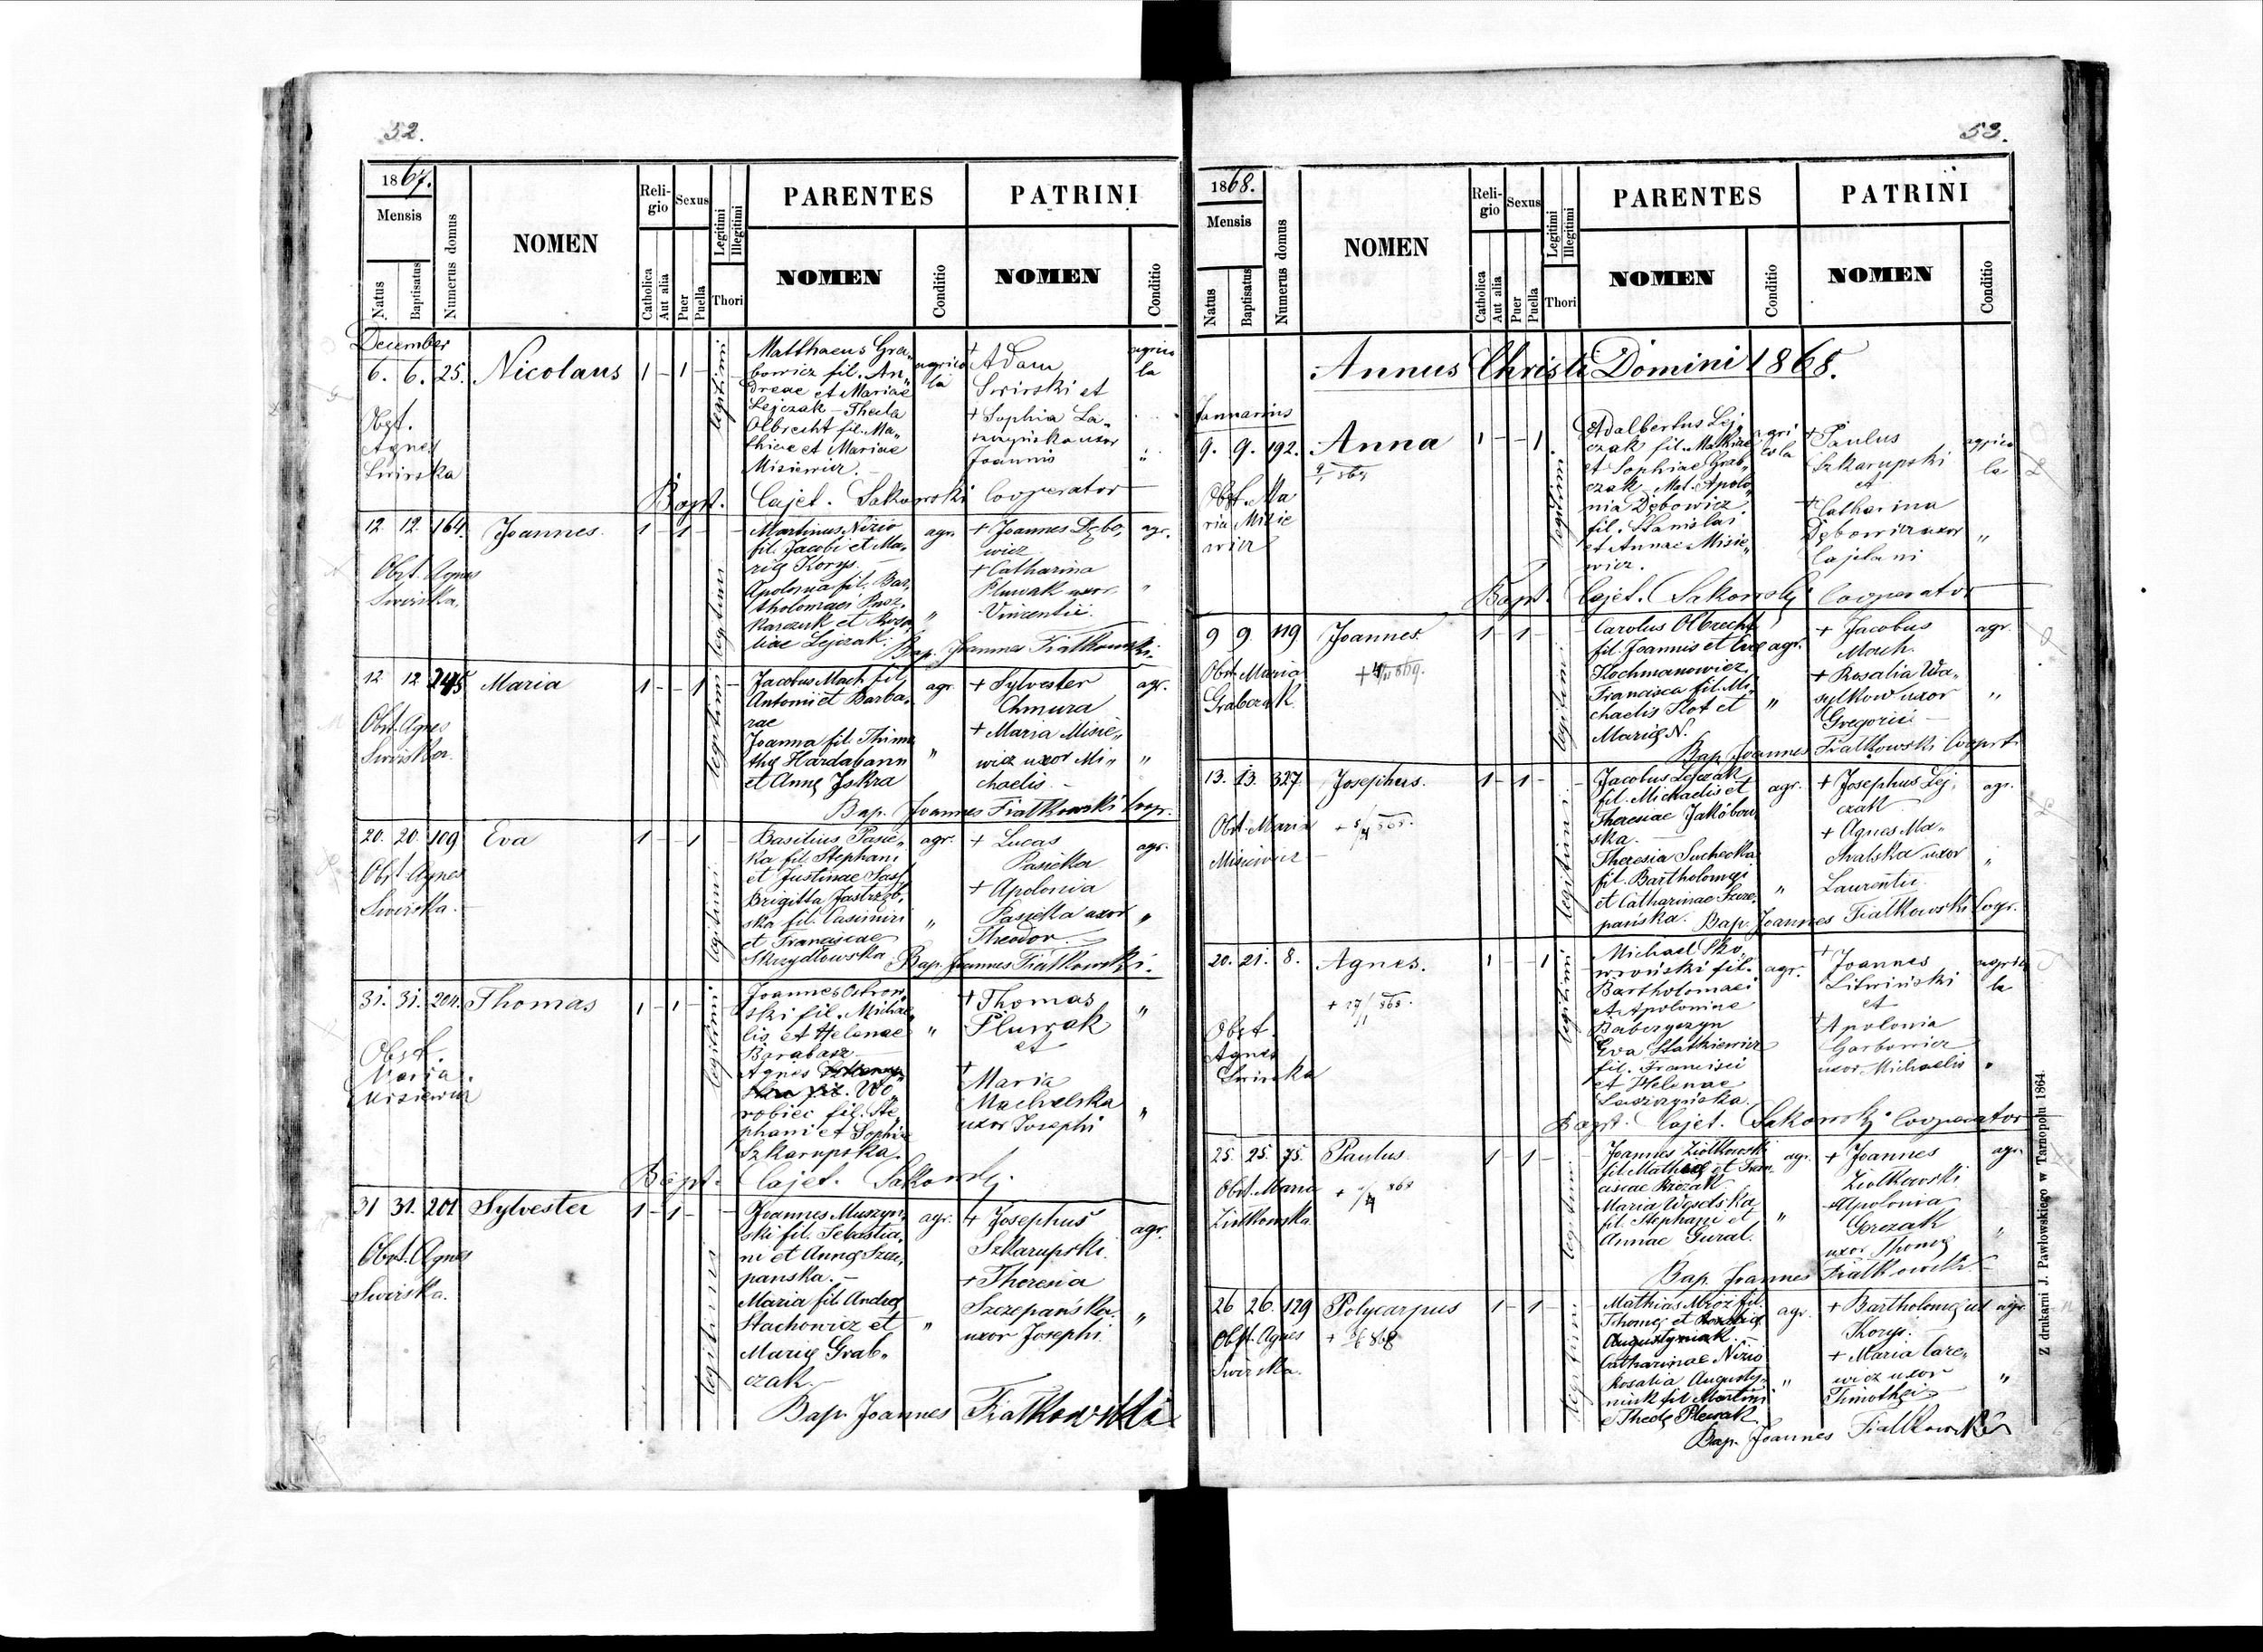 52.
1867.
Mensis
Natus
Baptisatus
Numerus domus
NOMEN
Religio
Catholica
Aut alia
Sexus
Puer
Puella
Legitimi
Illegitimi
Thori
PARENTES
NOMEN
Conditio
PATRINI
NOMEN
Conditio
December
6. 6. 25. Nicolaus 1 - 1 -
legitimi
Matthaeus Gra„
bowicz fil. An„
dreae et Mariae
Lejczak - Thecla
Olbrecht fil. Ma„
thiae et Mariae
Misiewicz.
agrico
la
+ Adam
Swirski et
+ Sophia La„
uxor
Joannis
agrico
la
„
Obst.
Agnes
Swirska
Bapt. Cajet. Sakowski Cooperator
12 12 164. Joannes. 1 - 1 -
legitimi
Martinus Nizio
fil. Jacobi et Ma„
rię Korys. -
Apolonia fil. Bar„
tholomaei Pusz„
karczuk et Rosa„
liae Lejczak.
agr.
„
+ Joannes Dębo„
wicz
+ Catharina
Pluwak uxor
Vinzentii.
agr.
„
Obst. Agnes
Swirska.
Bap. Joannes Fiatkowski.
12 12 245 Maria 1 - - 1
legitimi
Jacobus Mach fil.
Antonii et Barba„
rae
Joanna fil. Thimo
thę Hardabann
et Annę Jskra
agr.
„
+ Sylvester
Chmura
+ Maria Misie„
wicz uxor Mi„
chaelis. -
agr.
„
Obst. Agnes
Swirska.
Bap. Joannes Fiatkowski Coopr.
20. 20. 109 Eva 1 - - 1
legitimi
Basilius Pasie„
ka fil. Stephani
et Justinae Sas
Brigitta Jastrzęb„
ska fil. Casimiri
et Franciscae
Skrzydłowska
agr.
„
+ Lucas
Pasieka
+ Apolonia
Pasieka uxor
Theodor.
agr.
„
Obst. Agnes
Swirska.
Bap. Joannes Fiatkowski.
31. 31. 204. Thomas 1 - 1 -
legitimi
Joannes Ostrow„
ski fil. Michae„
lis et Helenae
Barabasz -
Agnes
fil. Wo„
robiec fil. Ste
phani et Sophiae
Szkarupska.
„
+ Thomas
Pluwak
et
+ Maria
Machalska
uxor Josephi
„
„
Obst.
Maria
Misiewicz
Bapt. Cajet. Sakowskj.
31 31. 201 Sylvester 1 - 1 -
legitimus
Joannes Muszyn„
ski fil. Sebastia„
ni et Annę Szcze„
panska. -
Maria fil. Andreę
Stachowicz et
Marię Grab„
czak. -
agr.
„
+ Josephus
Szkarupski.
+ Theresia
Szczepańska
uxor Josephi.
agr.
„
Obst. Agnes
Swirska.
Bap. Joannes Fiatkowski
53.
1868.
Mensis
Natus
Baptisatus
Numerus domus
NOMEN
Religio
Catholica
Aut alia
Sexus
Puer
Puella
Legitimi
Illegitimi
Thori
PARENTES
NOMEN
Conditio
PATRINI
NOMEN
Conditio
Annus Christi Domini 1868.
Januarius
9. 9. 192. Anna 1 - - 1
legitimi
Adalbertus Lej„
czak fil. Mathiae
et Sophiae Grab„
czak, Mat. Apolo„
nia Dębowicz
fil. Stanislai
et Annae Misie„
wicz.
agri
cola
+ Paulus
Szkarupski
et
+ Catharina
Dębowicz uxor
Cajetani
agrico
la
„
Obst. Ma
ria Misie
wicz
Bapt. Cajet. Sakowskj Cooperator
9 9. 119 Joannes. 1 - 1 -
legitimi
Carolus Olbrecht
fil. Joannis et Evę
Kochmanowicz.
Francisca fil. Mi„
chaelis Kot et
Marię N.
agr.
„
+ Jacobus
Mach.
+ Rosalia Wa„
sylkow uxor
Gregorii -
agr.
„
Obst. Maria
Grabczak
Bap. Joannes Fialkowski Cooprt.
13. 13. 327. Josephus. 1 - 1 -
legitimi
Jacobus Lejczak
fil. Michaelis et
Theresiae Jakóbow
ska. -
Theresia Suchecka
fil. Bartholomęi
et Catharinae Szcze„
pańska.
agr.
„
+ Josephus Lej„
czak
+ Agnes Ma„
chalska uxor
Laurentii.
agr.
„
Obst. Maria
Misiewicz
Bap. Joannes Fiatkowski Coopr.
20. 21. 8. Agnes. 1 - - 1
legitimi
Michael Sko„
wroński fil.
Bartholomaei
et Apoloniae
Babczyszyn
Eva Statkiewicz
fil. Francisci
et Helenae
Laszczyńska.
agr.
+ Joannes
Litwiński
et
+ Apolonia
Garbowicz
uxor Michaelis
agrico
la
„
Obst.
Agnes
Swirska
Bapt. Cajet. Sakowskj Cooperator
25. 25. 75. Paulus 1 - 1 -
legitimi
Joannes Ziółkowski
fil. Mathię et Fran
ciscae Brózak
Maria
fil. Stephani et
Annae Gural.
agr.
„
+ Joannes
Ziółkowski
+ Apolonia
Gorczak
uxor Thomę
agr.
„
Obst. Maria
Ziółkowska
Bap. Joannes Fiatkowski
26 26. 129 Polycarpus 1 - 1 -
legitimi
Mathias Mróz fil.
Thomę et Rosalię
Augustyniak. -
Catharinae Nizio
Rosalia Augusty„
niak fil. Martini
et Theclę Plewak.
agr.
„
+ Bartholomęus
Korys. -
+ Maria Care„
wicz uxor
Timothęi
agr.
„
Obst. Agnes
Swirska.
Bap. Joannes Fiatkowski
Z drukarni J. Pawłowskiego w Tarnopolu 1864.